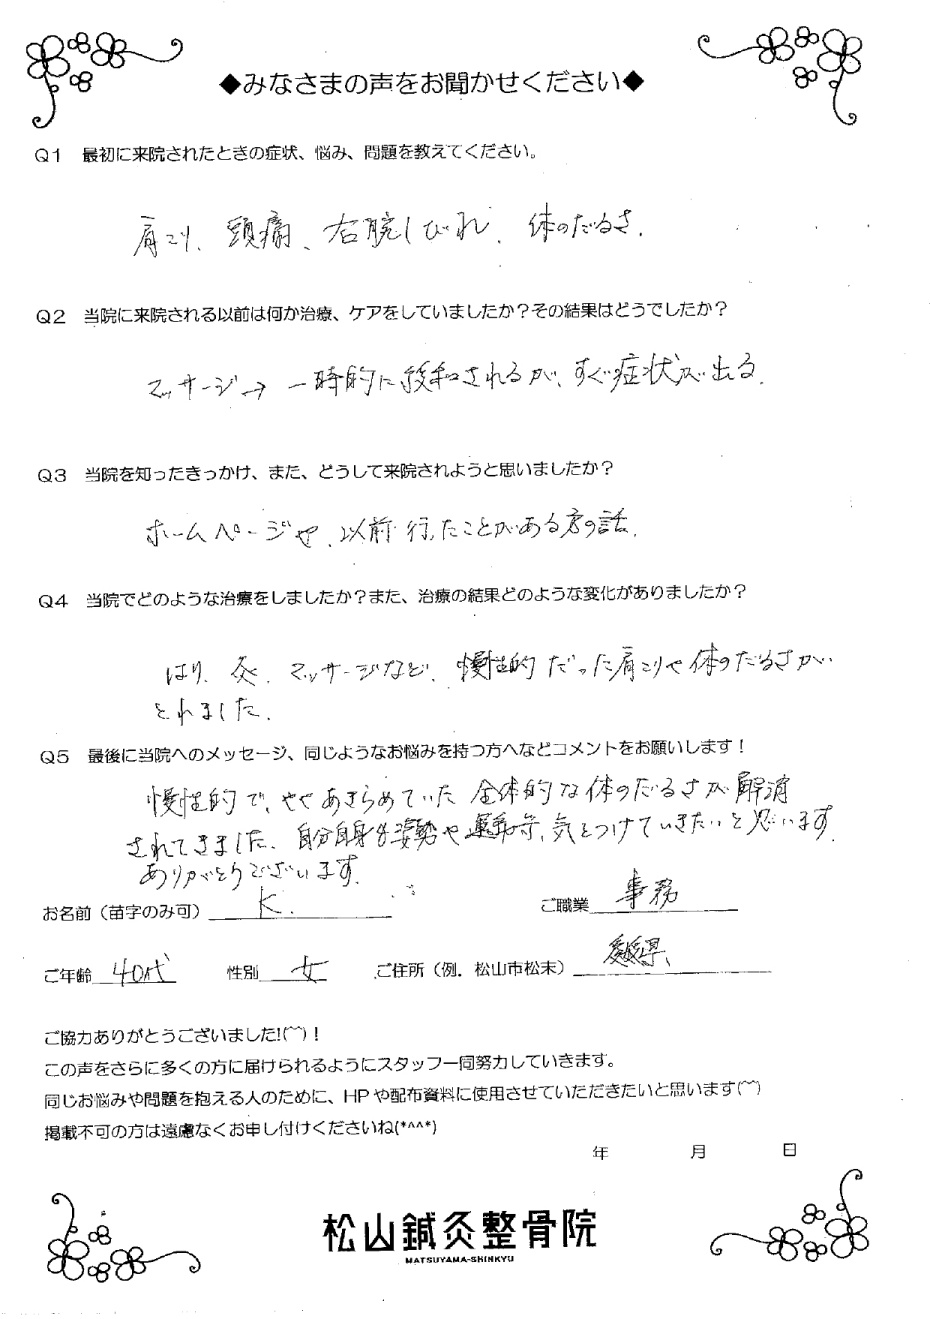 ◆みなさまの声をお聞かせください◆
Q1 最初に来院されたときの症状、悩み、問題を教えてください。
肩こり、頭痛、右腕しびれ、体のだるさ.
Q2 当院に来院される以前は何か治療、ケアをしていましたか？その結果はどうでしたか？
マッサージ→一時的に緩和されるが、すぐ症状が出る.
Q3 当院を知ったきっかけ、また、どうして来院されようと思いましたか？
ホームページや、以前行ったことがある方の話.
Q4 当院でどのような治療をしましたか？また、治療の結果どのような変化がありましたか？
はり、灸、マッサージなど、慢性的だった肩こりや体のだるさが
とれました.
Q5 最後に当院へのメッセージ、同じようなお悩みを持つ方へなどコメントをお願いします！
慢性的で、ややあきらめていた全体的な体のだるさが解消
されてきました、自分自身も姿勢や運動等、気をつけていきたいと思います.
ありがとうございます.
お名前（苗字のみ可） K. ご職業 事務
ご年齢 40代 性別 女 ご住所（例．松山市松末） 愛媛県
ご協力ありがとうございました!(⌒⌒)！
この声をさらに多くの方に届けられるようにスタッフ一同努力していきます。
同じお悩みや問題を抱える人のために、HPや配布資料に使用させていただきたいと思います(⌒⌒)
掲載不可の方は遠慮なくお申し付けくださいね(*^^*)
年 月 日
松山鍼灸整骨院
MATSUYAMA-SHINKYU